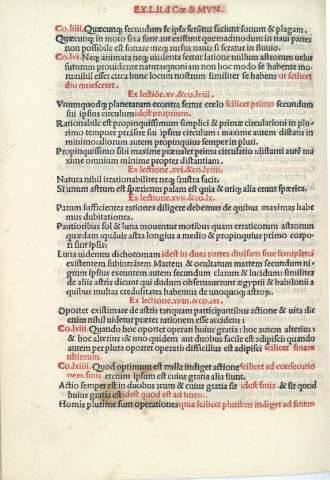 EX.LI.II.A Cœ.& MVN.
Co.liiii. Quæcunq; secundum se ipsa ferūtur faciunt sonum & plagam.
Quæcunq; in moto fixa sunt aut existunt quemadmodum in naui partes
non possibile est sonare: neq; rursus nauis si feratur in fluuio.
Co.lvi. Neq; animata neq; uiolenta fertur latione nullum astrorum uelut
futurum prouidente natura: quoniam non hoc modo se habente mo-
tu nihil esset circa hunc locum nostrum similiter se habens ut sciliceti
diu quiesceret.
Ex lectiōe.xv.&co.lviii.
Vnumquodq; planetarum econtra fertur cœlo scilicet primo secundum
sui ipsius circulum idest proprium.
Rationabile est propinquissimum simplici & primæ circulationi in plu-
rimo tempore pträsire sui ipsius circulum: maxime autem distans in
minimo: aliorum autem propinquius semper in pluri.
Propinquissimo sibi maxime præualet prima circulatio distanti autē ma
xime omnium minime propter distantiam.
Ex lectione.xvi.&co.lviii.
Natura nihil irrationabiliter neq; frustra facit.
Si unum astrum est spæricum palam est quia & utiq; alia erunt spærica.
Ex lectione.xvii.&co.lx.
Parum sufficientes rationes diligere debemus de quibus maximas habe
mus dubitationes.
Pautioribus sol & luna mouentur motibus quam erraticorum astrorum
quædam quāuis astra longius a medio & propinquius primo corpo-
ri sunt ipsis.
Luna uidemus dichotomam idest in duas partes diuisam siue semiplenā
existentem subintrātem Martem. & occultatum martem secundum ni-
grum ipsius excuntem autem secundum clarum & lucidum: similiter
de aliis astris dicunt qui dudum obseruauerunt ægyptii & babilonii a
quibus multas credulitates habemus de unoquoq; astroȝ.
Ex lectione.xviii.&co.lxi.
Oportet existimate de astris tanquam participantibus actione & uita sic
enim nihil uidetur præter rationem esse accidens:
Co.lxiii. Quando hoc oportet operari huius gratia: hoc autem alterius:
& hoc alterius: & uno quidem aut duobus facile est adipisci quando
autem per plura oportet operari difficilius est adipisci scilicet finem
ultimum.
Co.lxiiii. Quod optimum est nulla indiget actione scilicet ad consecutio
nem finis etenim ipsum est cuius gratia alia fiunt.
Actio semper est in duobus: cum & cuius gratia sit idest finis & sit quod
huius gratia est idest quod est ad finem.
Homīs plurime sunt operationes quia scilicet pluribus indiget ad finem